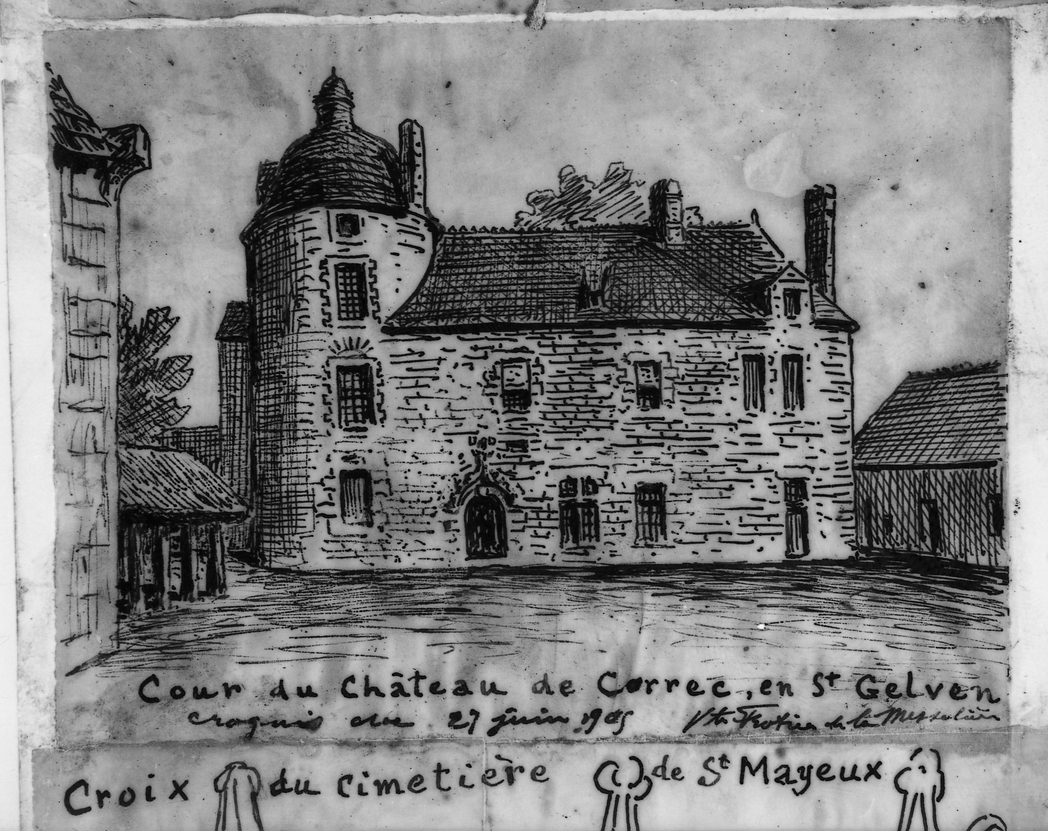 Cour du Château de Correc, en St Gelven
croquis du 27 juin 1905 Vte Frotier de la Messelière
Croix du cimetière de St Mayeux